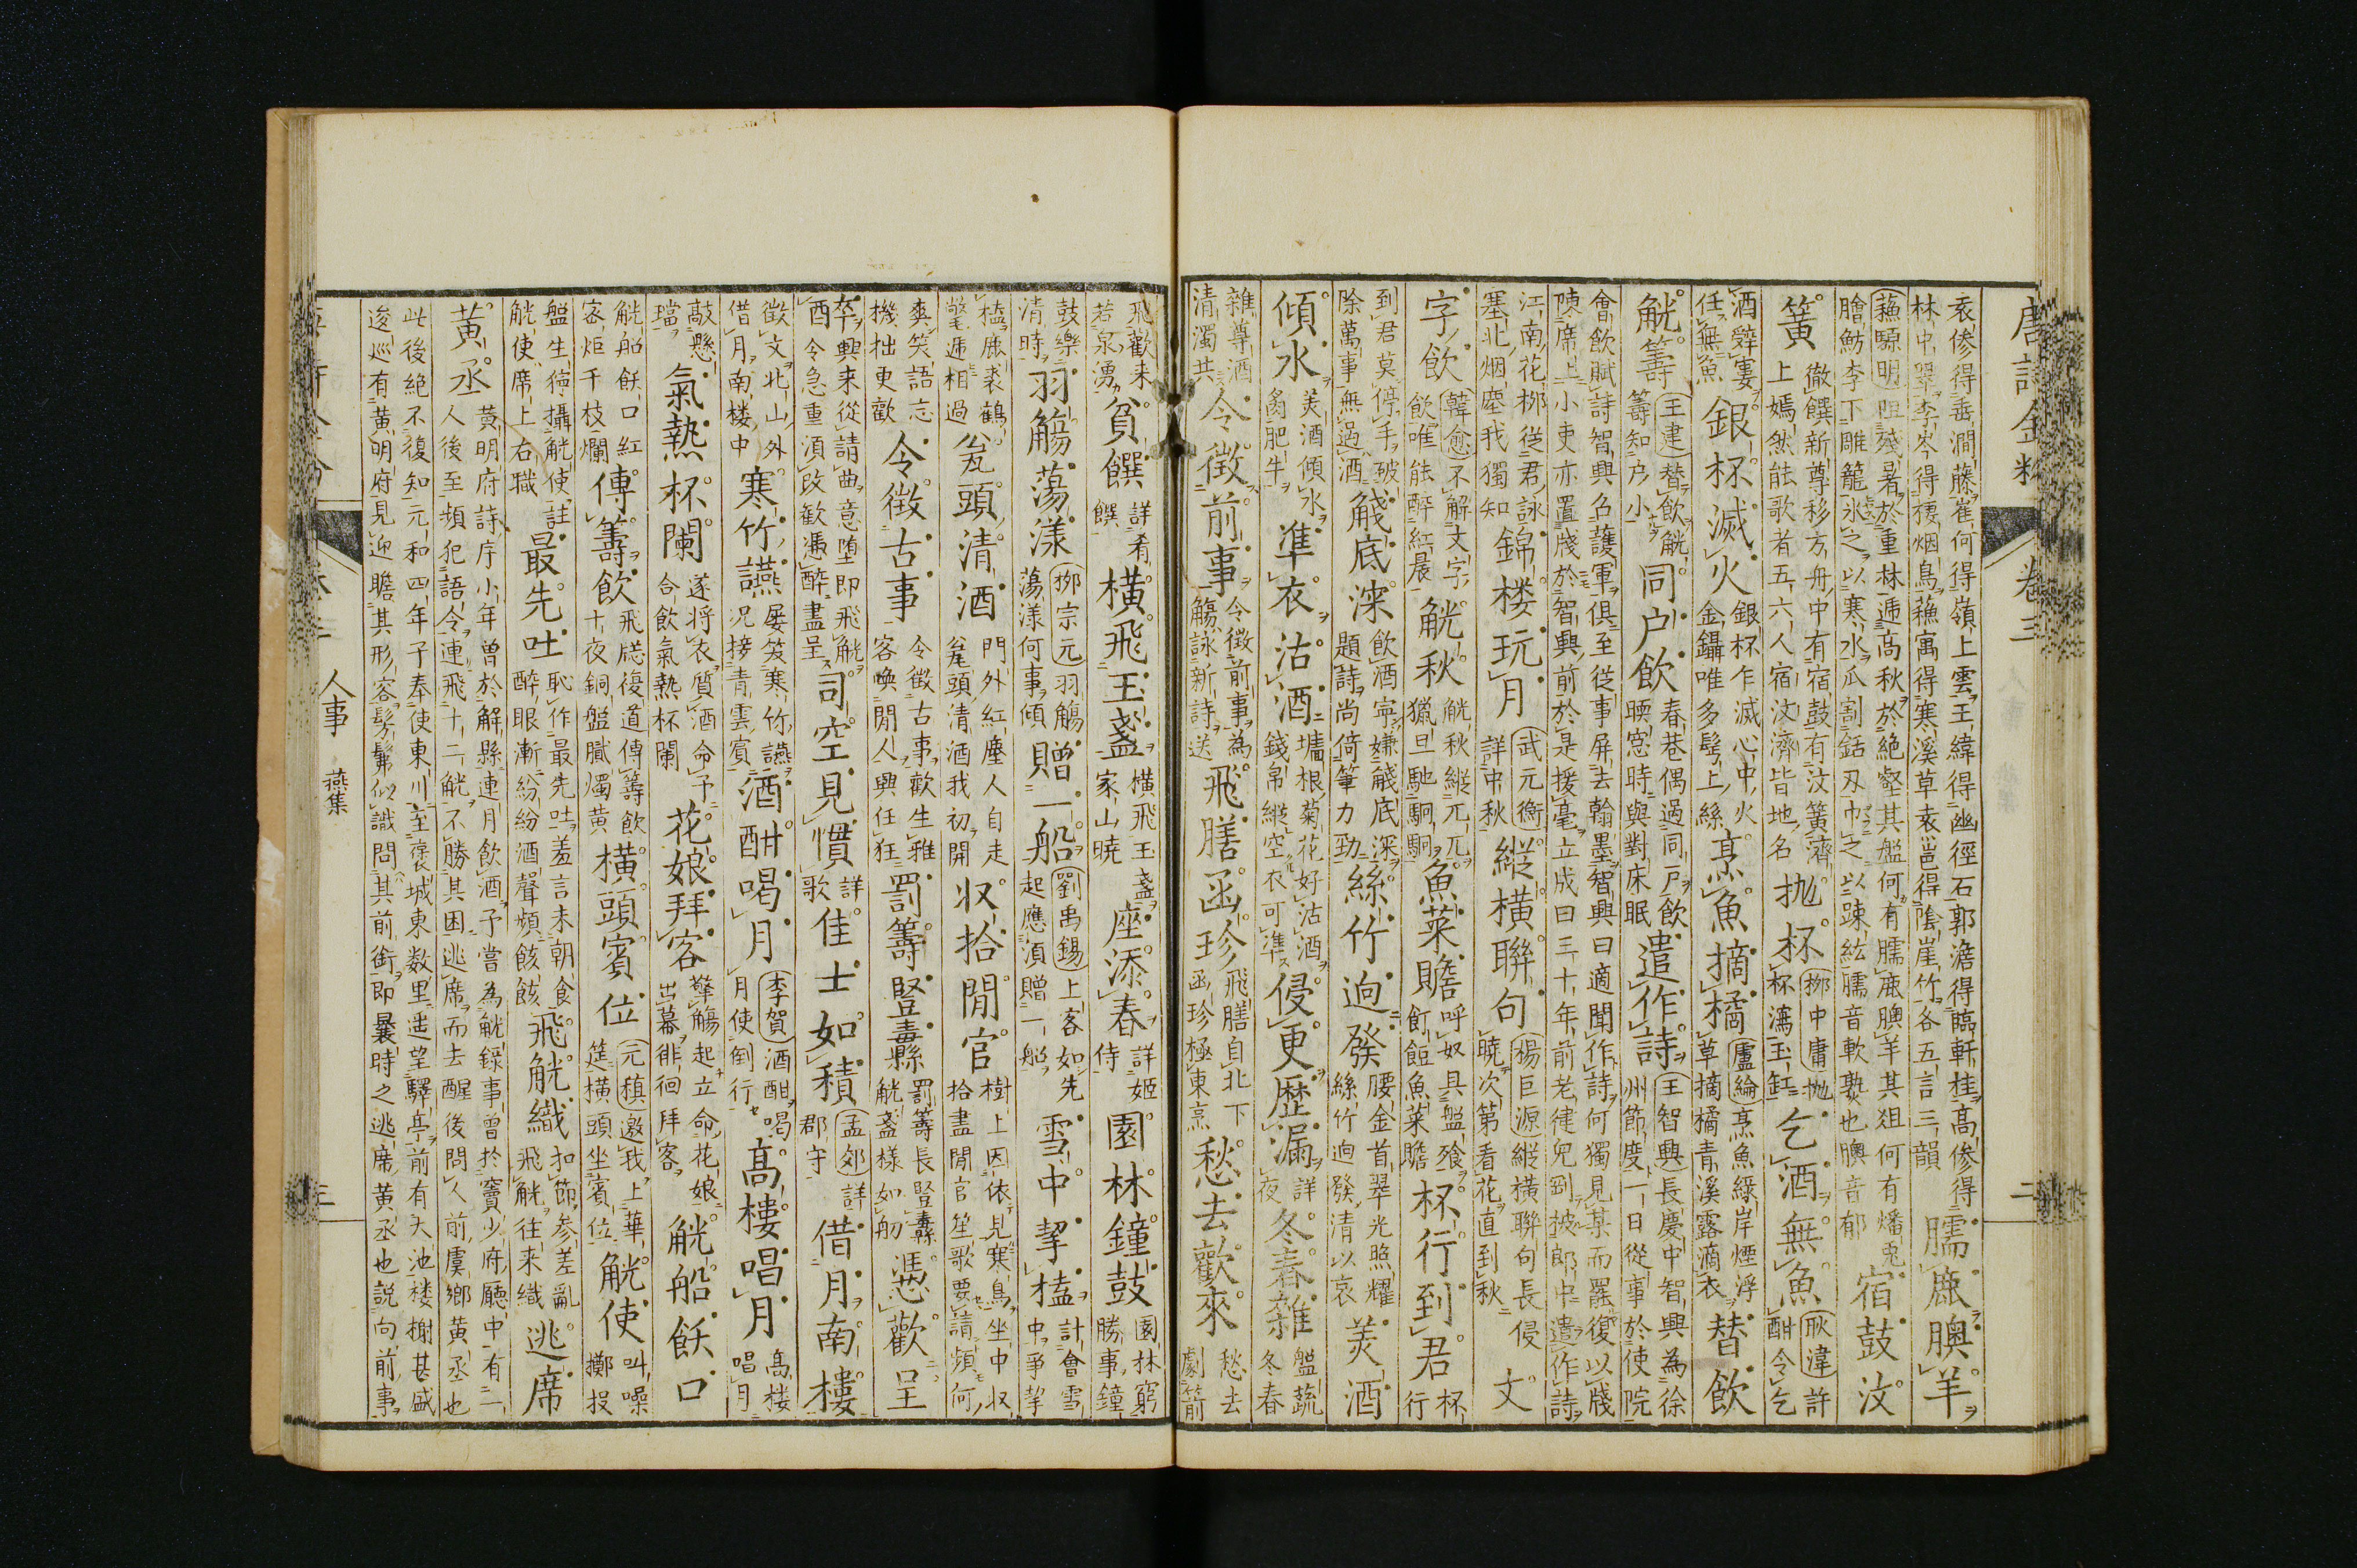 唐詩金粉 卷三 二
袁傪得垂澗藤崔何得嶺上雲王緯得幽徑石郭澹得臨軒桂高傪得
林中翠李岑得棲烟鳥蘓寓得寒溪草袁邕得陰崖竹各五言三韻
臑鹿腝羊
蘓源明 殘暑於重林遞高秋於絶壑其盤何有臑鹿腝羊其俎何有燔兎
膾魴李下雕籠冰之以寒水瓜割銛刃巾之以踈絃臑音軟𤍠也腝音郁
宿鼓汶
簧
徹饌新尊移方舟中有宿鼓有汶簧濟
上嫣然能歌者五六人宿汶濟皆地名
抛杯
柳中庸抛
杯瀉玉缸
乞酒無魚
耿湋許
酣令乞
酒辤寠
任無魚
銀杯滅火
銀杯乍滅心中火
金鑷唯多髩上絲
烹魚摘橘
盧綸烹魚綠岸煙浮
草摘橘青溪露滴衣
替飲
觥籌
王建替飲觥
籌知户小
同户飲
春巷偶過同戸飲
㬉窓時與對床眠
遣作詩
王智興長慶中智興為徐
州節度一日從事於使院
會飲賦詩智興召護軍俱至從事屏去翰墨智興曰適聞作詩何獨見某而罷復以牋
陳席上小吏亦置牋於智興前於是援毫立成曰三十年前老徤兒剛被郎中遣作詩
江南花柳從君詠
塞北烟塵我獨知
錦楼玩月
武元衡
詳中秋
縱橫聯句
楊巨源縱橫聯句長侵
曉次第看花直到秋
文
字飲
韓愈不解文字
飲唯能醉紅裙
觥秋
觥秋縱兀兀
獵旦馳駉駉
魚菜贍
呼奴具盤飱
飣餖魚菜贍
杯行到君
杯
行
到君莫停手破
除萬事無過酒
觴底深
飲酒寧嫌觴底深
題詩尚倚筆力勁
絲竹逈發
腰金首翠光照耀
絲竹逈發清以哀
羙酒
傾水
美酒傾水
炙肥牛
準衣沽酒
墻根菊花好沽酒
錢帛縱空衣可凖
侵更歴漏
詳
夜
冬春雜
盤蔬
冬春
雜尊酒
清濁共
令徴前事
令徴前事為
觴詠新詩送
飛膳函珍
飛膳自北下
函珍極東烹
愁去歡來
愁去
劇箭
飛歡来
若泉湧
貧饌
詳肴
饌
横飛玉盞
横飛玉盞
家山曉
座添春
詳姬
侍
園林鐘鼓
園林窮
勝事鐘
鼓樂
清時
羽觴蕩漾
柳宗元羽觴
蕩漾何事傾
贈一船
劉禹錫上客如先
起應須贈一船
雪中挈榼
計會雪
中争挈
榼鹿裘鶴
氅遞相過
瓮頭清酒
門外紅塵人自走
瓮頭清酒我初開
収拾閒官
樹上因依見寒鳥坐中収
拾盡閒官笙歌要請頻何
爽笑語忘
機拙更歡
令徴古事
令徴古事歡生雅
客喚閒人興任狂
罰籌豎纛
罰籌長豎纛
觥盞様如舠
憑歡呈
卒興来從請曲意堕即飛觥
酉令急重須改歓憑醉盡呈
司空見慣
詳
歌
佳士如積
孟郊詳
郡守
借月南樓
徴文北山外
借月南楼中
寒竹讌
屢笈寒竹讌
况接青雲賓
酒酣喝月
李賀酒酣喝
月使倒行
髙樓唱月
髙楼
唱月
敲懸
璫
氣熱杯闌
遂将衣質酒命予
合飲氣熱杯闌
花娘拜客
擎觴起立命花娘
出幕徘徊拜客
觥船飫口
觥船飫口紅
客炬千枝爛
傳籌飲
飛牋復道傳籌飲
十夜銅盤膩燭黄
横頭賓位
元稹邀我上華
筵横頭坐賓位
觥使
叫噪
擲投
盤生獰攝觥使註
觥使席上右職
最先吐
恥作最先吐羞言未朝食
醉眼漸紛紛酒聲頻餩餩
飛觥織
扣節参差亂
飛觥往来織
逃席
黄丞
黄明府詩序小年曽於解縣連月飲酒予嘗為觥録事曽於竇少府廳中有一
人後至頻犯語令連飛十二觥不勝其困逃席而去醒後問人前虞鄉黄丞也
此後絶不復知元和四年子奉使東川至褒城東数里遥望驛亭前有大池楼榭甚盛
逡巡有黄明府見迎瞻其形容髣髴似識問其前銜即曩時之逃席黄丞也説向前事
人事 燕集 三